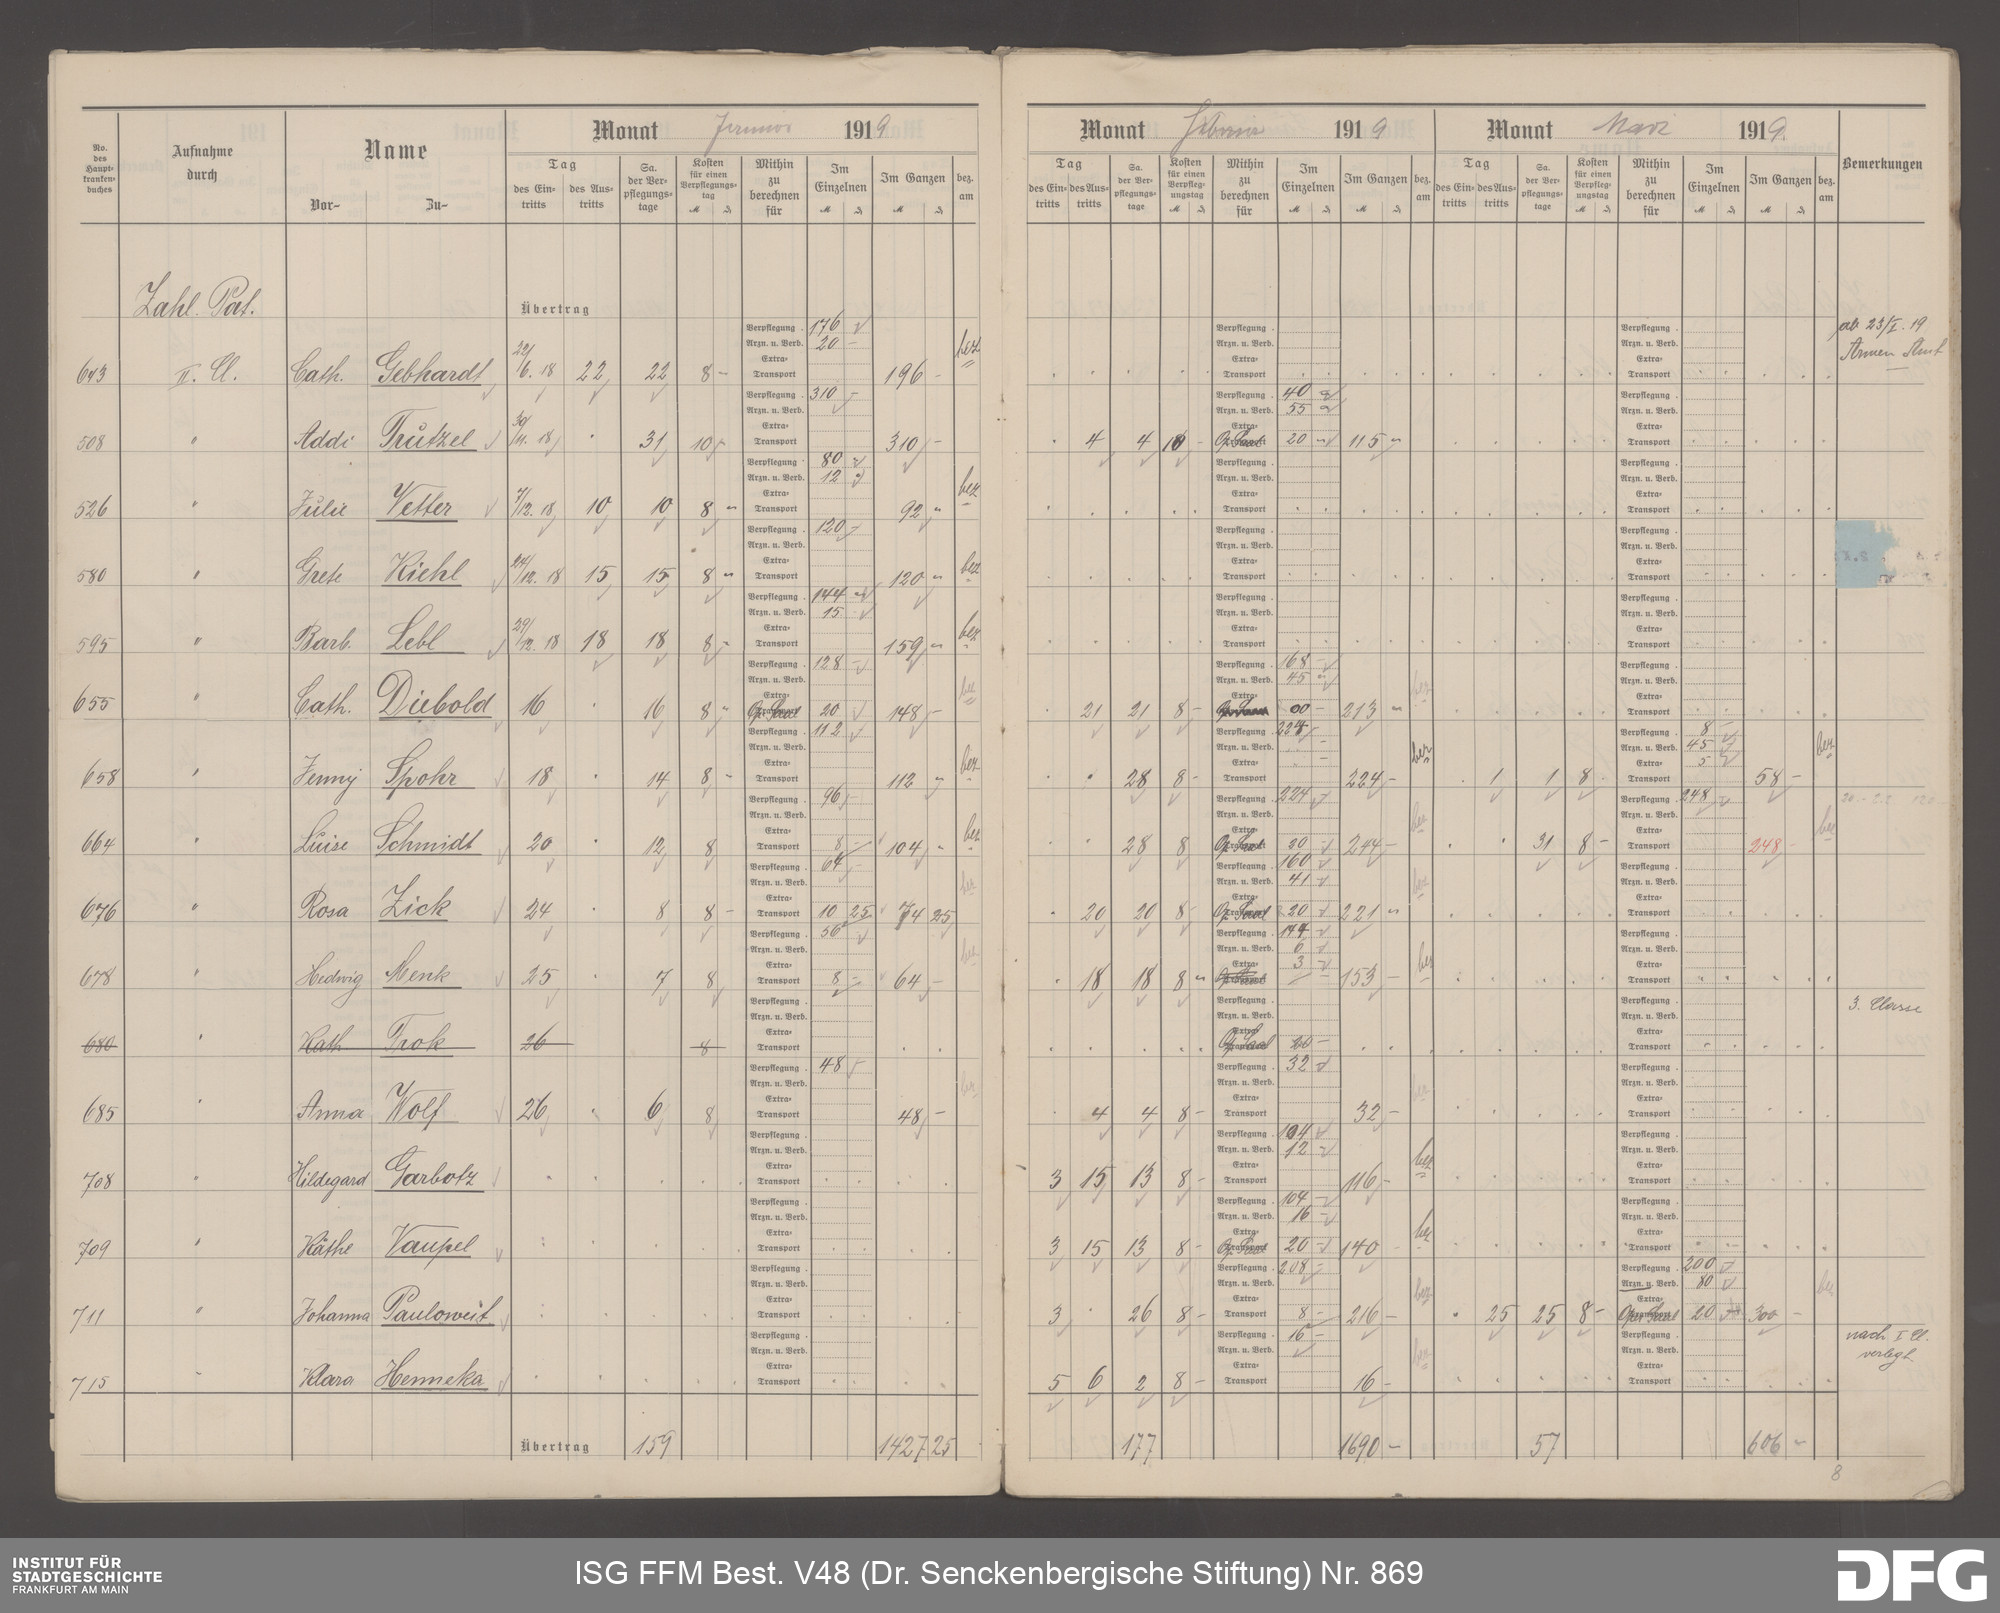 Monat Januar 1919
Monat Februar 1919
Monat März 1919
No. des Haupt-kranken-buches
Aufnahme durch
Name
Vor-
Zu-
Tag
des Ein-tritts
des Aus-tritts
Sa. der Ver-pflegungs-tage
Kosten für einen Verpflegungs-tag
Mithin zu berechnen für
Im Einzelnen
Im Ganzen
bez. am
Tag
des Ein-tritts
des Aus-tritts
Sa. der Ver-pflegungs-tage
Kosten für einen Verpfleg-ungstag
Mithin zu berechnen für
Im Einzelnen
Im Ganzen
bez. am
Tag
des Ein-tritts
des Aus-tritts
Sa. der Ver-pflegungs-tage
Kosten für einen Verpfleg-ungstag
Mithin zu berechnen für
Im Einzelnen
Im Ganzen
bez. am
Bemerkungen
Zahl. Pat.
Übertrag
Verpflegung 176
Arzn. u. Verb. 20 -
Extra-
Transport
643 II. Cl. Cath. Gebhardt 22/6. 18 22 22 8 - 196 - bez
ab 23/I. 19
Armen Amt
Verpflegung 310 - 40
Arzn. u. Verb. 55
508 " Addi Trützel 30/11. 18 31 10 310 - 4 4 10 Op. Saal 20 115
Verpflegung 80
Arzn. u. Verb. 12
526 " Julie Vetter 7/12. 18 10 10 8 92 bez
Verpflegung 120 -
580 " Grete Kiehl 24/12. 18 15 15 8 120 bez
Verpflegung 144
Arzn. u. Verb. 15
595 " Barb. Lebl 29/12. 18 18 18 8 159 bez
Verpflegung 128 - 168 -
Arzn. u. Verb. 45
655 " Cath. Diebold 16 16 8 Op. Saal 20 148 - bez 21 21 8 - 00 - 213 bez
Verpflegung 112 224 8
Arzn. u. Verb. 45
Extra- 5
658 " Jenny Spohr 18 14 8 - 112 bez 28 8 - 224 - bez 1 1 8 58 - bez
Verpflegung 96 224 248
664 " Luise Schmidt 20 12 8 8 104 bez 28 8 Op. Saal 20 244 - bez 31 8 - 248 - bez
Verpflegung 64 160
Arzn. u. Verb. 41
676 " Rosa Zick 24 8 8 - 10 25 74 25 bez 20 20 8 - Op. Saal 20 221 bez
Verpflegung 56 144
Arzn. u. Verb. 6
Extra- 3
678 " Hedwig Menk 25 7 8 8 - 64 - bez 18 18 8 153 - bez
3. Classe
680 " Kath Trok 26 8 Op. Saal 20 -
Verpflegung 48 32
685 " Anna Wolf 26 6 8 48 - bez 4 4 8 - 32 - bez
Verpflegung 104
Arzn. u. Verb. 12
708 " Hildegard Garbotz 3 15 13 8 - 116 - bez
Verpflegung 104
Arzn. u. Verb. 16
709 " Käthe Vaupel 3 15 13 8 - Op. Saal 20 - 140 bez
Verpflegung 208 - 200
Arzn. u. Verb. 80
711 " Johanna Pauloweit 3 26 8 - 8 - 216 - bez 25 25 8 - Oper Saal 20 300 - bez
Verpflegung 16 -
nach I Cl.
verlegt
715 " Klara Henneka 5 6 2 8 - 16 - bez
Übertrag 159 1427 25 177 1690 - 57 606 -
8
INSTITUT FÜR
STADTGESCHICHTE
FRANKFURT AM MAIN
ISG FFM Best. V48 (Dr. Senckenbergische Stiftung) Nr. 869
DFG